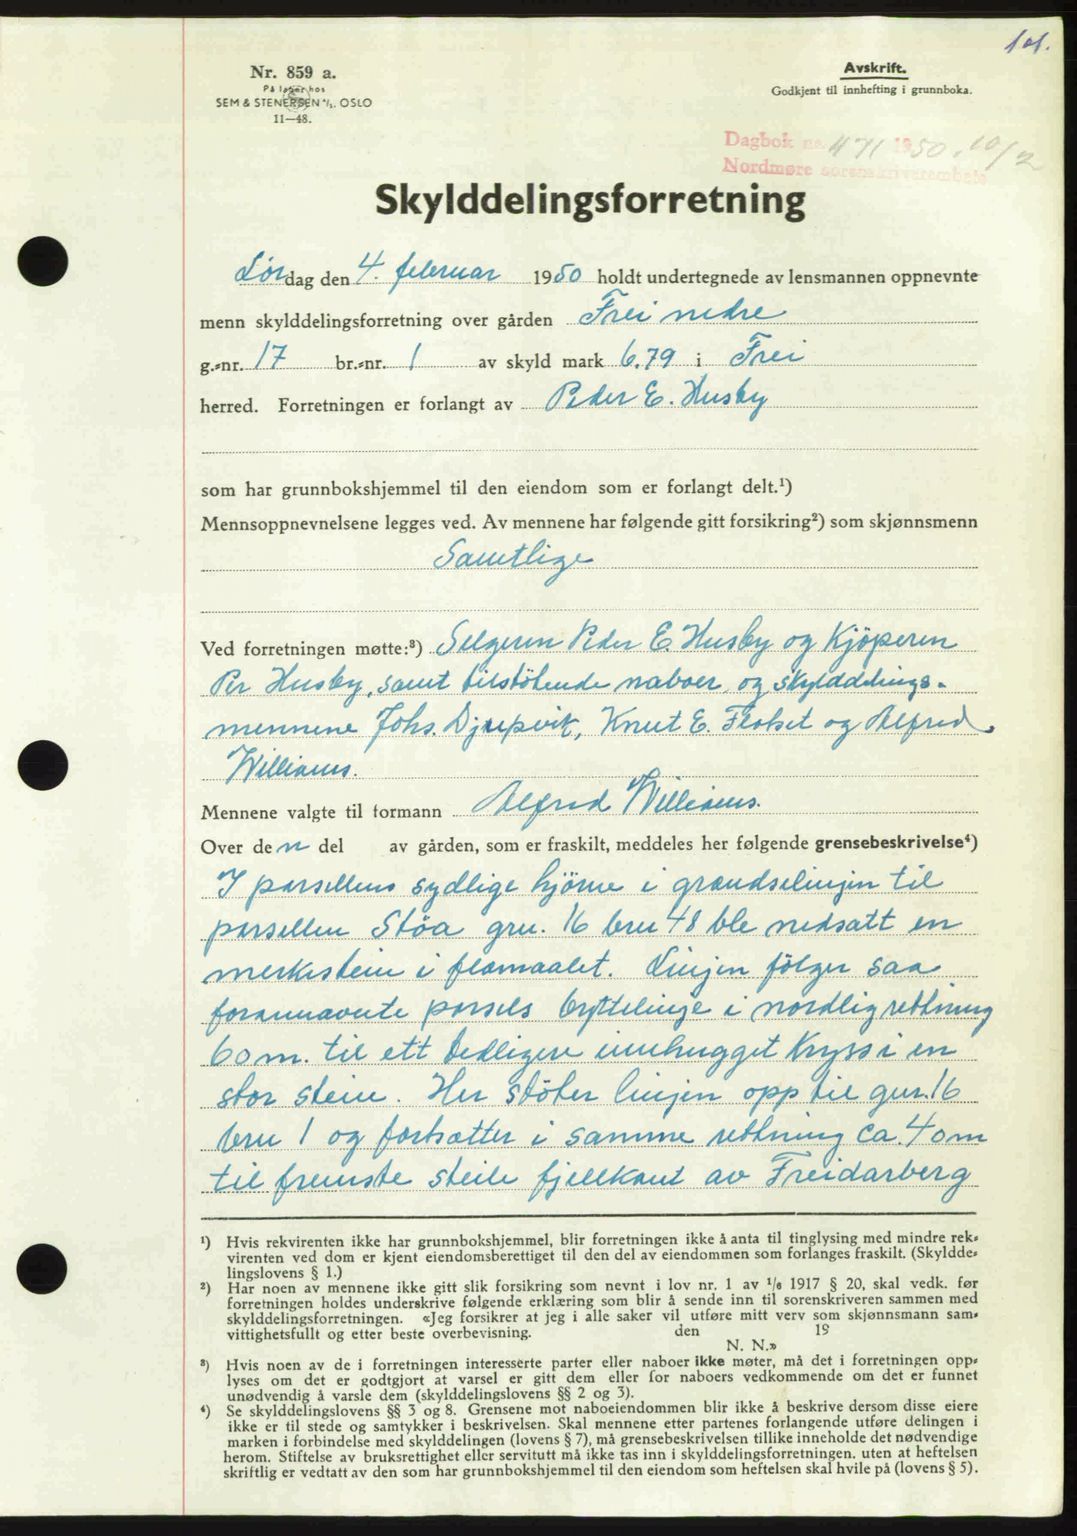 101.
Nr. 859 a.
På lager hos
SEM & STENERSEN A/S, OSLO
11—48.
Avskrift.
Godkjent til innhefting i grunnboka.
Dagbok nr. 471 1950. 10/2
Nordmøre sorenskriverembete
Skylddelingsforretning
Lørdag den 4. februar 1950 holdt undertegnede av lensmannen oppnevnte
menn skylddelingsforretning over gården Frei nedre
g.-nr. 17 br.-nr. 1 av skyld mark 6.79 i Frei
herred. Forretningen er forlangt av Peder E. Husby
som har grunnbokshjemmel til den eiendom som er forlangt delt.¹)
Mennsoppnevnelsene legges ved. Av mennene har følgende gitt forsikring²) som skjønnsmenn
Samtlige
Ved forretningen møtte:³) Selgeren Peder E. Husby og Kjöperen
Per Husby, samt tilstötende naboer og skylddelings-
mennene Johs. Djupvik, Knut E. Flatset og Alfred
Williams.
Mennene valgte til formann Alfred Williams.
Over den del av gården, som er fraskilt, meddeles her følgende grensebeskrivelse⁴)
I parsellens sydlige hjörne i grændselinjen til
parsellen Stöa gnr. 16 bnr 48 ble nedsatt en
merkestein i flomaalet. Linjen fölger saa
forannævnte parsels byttelinje i nordlig retning
60 m. til ett tedligere innhugget Kryss i en
stor stein. Her stöter linjen opp til gnr. 16
bnr 1 og fortsætter i samme retning ca. 40 m
til fremste steile fjellkant av Freidarberg
¹) Hvis rekvirenten ikke har grunnbokshjemmel, blir forretningen ikke å anta til tinglysing med mindre rek-
virenten ved dom er kjent eiendomsberettiget til den del av eiendommen som forlanges fraskilt. (Skyldde-
lingslovens § 1.)
²) Har noen av mennene ikke gitt slik forsikring som nevnt i lov nr. 1 av ¹/₆ 1917 § 20, skal vedk. før
forretningen holdes underskrive følgende erklæring som blir å sende inn til sorenskriveren sammen med
skylddelingsforretningen. «Jeg forsikrer at jeg i alle saker vil utføre mitt verv som skjønnsmann sam-
vittighetsfullt og etter beste overbevisning. den 19
N. N.»
³) Hvis noen av de i forretningen interesserte parter eller naboer ikke møter, må det i forretningen opp-
lyses om det er godtgjort at varsel er gitt dem eller for naboers vedkommende om det er funnet
unødvendig å varsle dem (skylddelingslovens §§ 2 og 3).
⁴) Se skylddelingslovens §§ 3 og 8. Grensene mot naboeiendommen blir ikke å beskrive dersom disse eiere
ikke er til stede og samtykker i beskrivelsen. Skal mennene etter partenes forlangende utføre delingen i
marken i forbindelse med skylddelingen (lovens § 7), må grensebeskrivelsen tillike inneholde det nødvendige
herom. Stiftelse av bruksrettighet eller servitutt må ikke tas inn i skylddelingsforretningen, uten at heftelsen
skriftlig er vedtatt av den som har grunnbokshjemmel til den eiendom som heftelsen skal hvile på (lovens § 5).